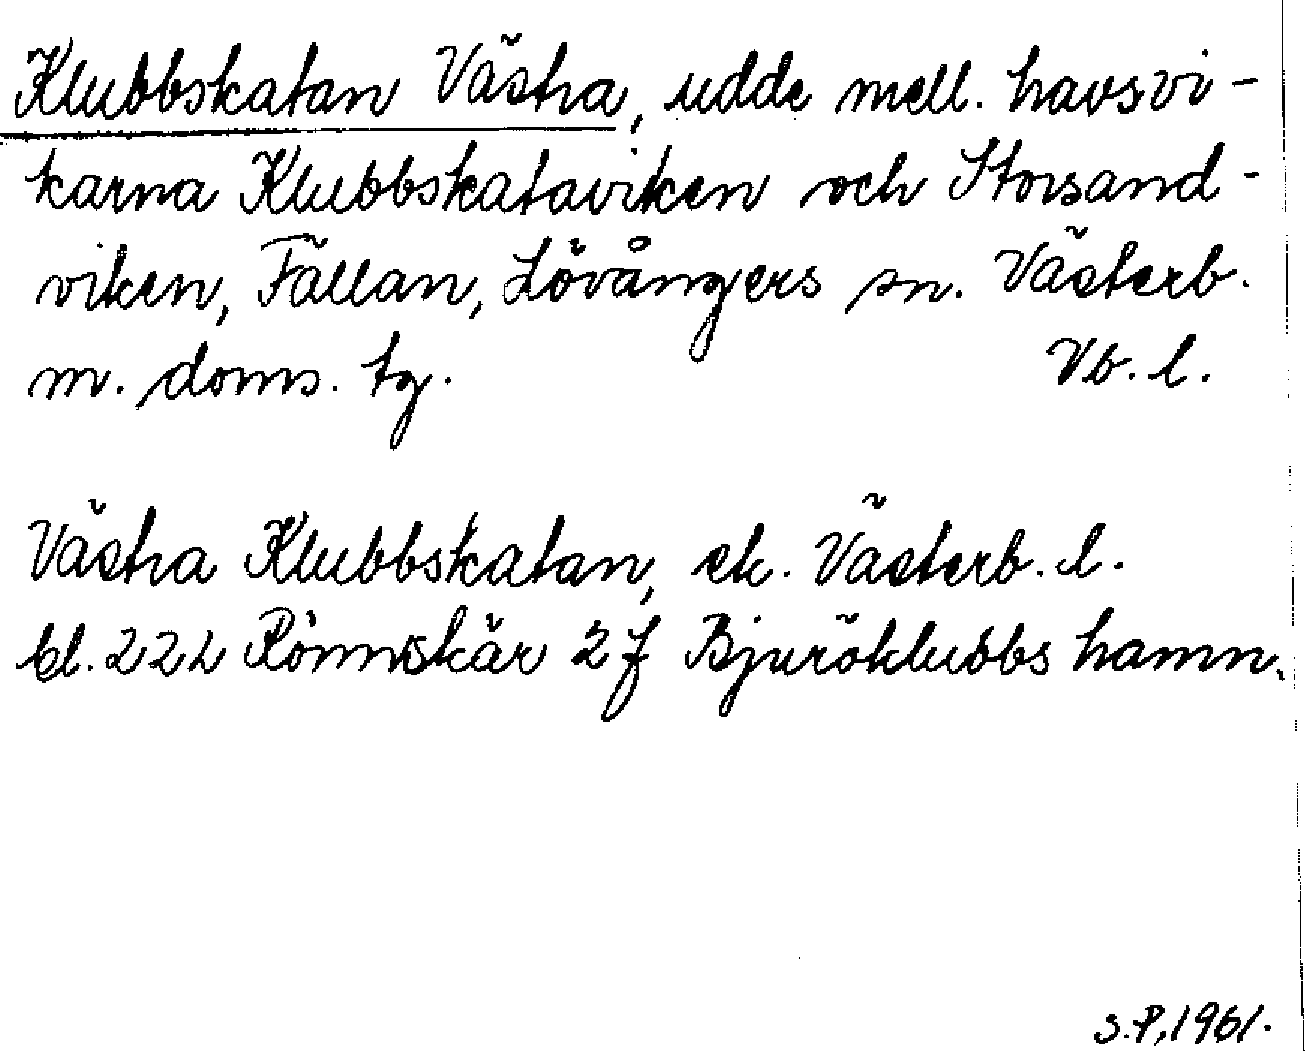 Klubbskatan Västra, udde mell. havsvi-
karna Klubbskataviken och Storsand-
viken, Fällan, Lövångers sn. Västerb.
m. doms. tg. Vb. l.
Västra Klubbskatan, ek. Västerb. l.
bl. 222 Rönnskär 2 f Bjuröklubbs hamn.
S.P, 1961.